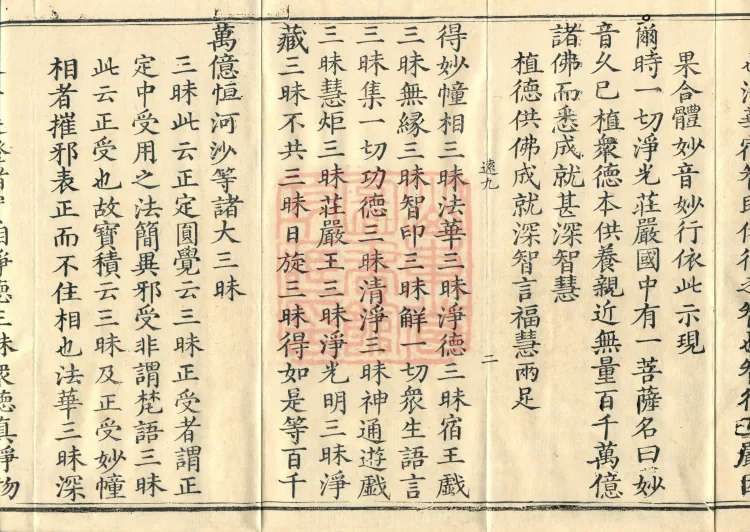 也法華宿智即依行之智也智行
果合體妙音妙行依此示現
爾時一切淨光莊嚴國中有一菩薩名曰妙
音久已植衆德本供養親近無量百千萬億
諸佛而悉成就甚深智慧
植德供佛成就深智言福慧兩足
遠九
二
得妙幢相三昧法華三昧淨德三昧宿王戲
三昧無緣三昧智印三昧解一切衆生語言
三昧集一切功德三昧清淨三昧神通遊戲
三昧慧炬三昧莊嚴王三昧淨光明三昧淨
藏三昧不共三昧日旋三昧得如是等百千
萬億恒河沙等諸大三昧
三昧此云正定圓覺云三昧正受者謂正
定中受用之法簡異邪受非謂梵語三昧
此云正受也故寶積云三昧及正受妙幢
相者摧邪表正而不住相也法華三昧深
淨德三昧衆德真淨